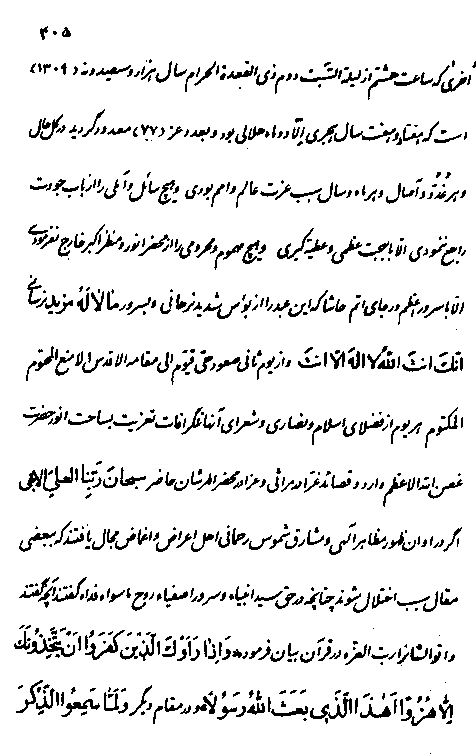 ۴۰۵
اخری که ساعت هشتم از لیلة السبت دوم ذی القعدة الحرام سال هزار و سیصد و نه (۱۳۰۹)
است که هفتاد و هفت سال هجری الّا دو ماه هلالی بود و بعدد عز (۷۷) معدود گردید در کل حال
و هر غدوّ و آصال و هر ماه و سال سبب عزت عالم و امم بودی و هیچ سائل و آملی را از باب جودت
راجع ننمودی الّا ببهجت عظمی و عطیه کبری و هیچ مهموم و محرومی را از محضر انور و منظر اکبر خارج نفرمودی
الّا با سرور اعظم و رجای اتم حاشا که این عبد را از بؤس شدید نرهانی و بسرور ما لا لَهُ مزید نرسانی
انّک انت الله لا اله الّا انت و از یوم ثانی صعود حیّ قیّوم الی مقامه الاقدس الامنع المختوم
المکتوم هر یوم از فضلای اسلام و نصاری و شعرای آنها تلگرافات تعزیت بساحت انور حضرت
غصن الله الاعظم وارد و قصائد غرّا در مراثی و عزا در محضر المرشان حاضر سبحان ربّنا العلیّ الابهی
اگر در اوان ظهور مظاهر الهی و مشارق شموس رحمانی اهل اعراض و اغماض مجال یافتند که ببعضی
مقال سبب اختلال شوند چنانچه در حق سید انبیاء و سرور اصفیاء روح ما سواه فداه گفتند آنچه گفتند
و اقوالشانرا رب العزه در قرآن بیان فرموده وَاِذَا رَاَوْكَ الَّذِینَ كَفَرُوا اِنْ یَتَّخِذُونَكَ
اِلَّا هُزُوًا اَهٰذَا الَّذِی بَعَثَ اللهُ رَسُولًا و در مقام دیگر وَلَمَّا سَمِعُوا الذِّكْرَ